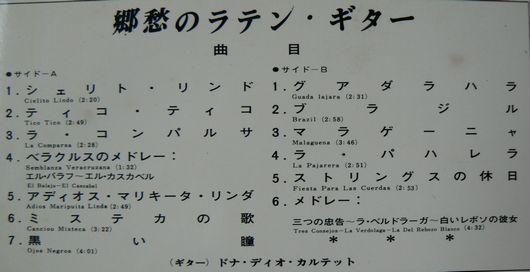 郷愁のラテン・ギター
曲目
●サイド-A
1. シェリト・リンド
Cielito Lindo (2:20)
2. ティコ・ティコ
Tico Tico (2:49)
3. ラ・コンパルサ
La Comparsa (2:28)
4. ベラクルスのメドレー:
Semblanza Veracruzana (1:32)
エル・バラフ〜エル・カスカベル
El Balaju〜El Cascabel
5. アディオス・マリキータ・リンダ
Adios Mariquita Linda (2:49)
6. ミステカの歌
Canciou Mixteca (3:22)
7. 黒い瞳
Ojos Negros (4:01)
●サイド-B
1. グアダラハラ
Guada lajara (2:31)
2. ブラジル
Brazil (2:58)
3. マラゲーニャ
Malaguena (3:46)
4. ラ・パハレラ
La Pajarera (2:51)
5. ストリングスの休日
Fiesta Para Las Cuerdas (2:53)
6. メドレー:
三つの忠告〜ラ・ベルドラーガ〜白いレボソの彼女
Tres Consejos〜La Verdolaga〜La Del Rebozo Blanco (4:32)
* * *
(ギター) ドナ・ディオ・カルテット